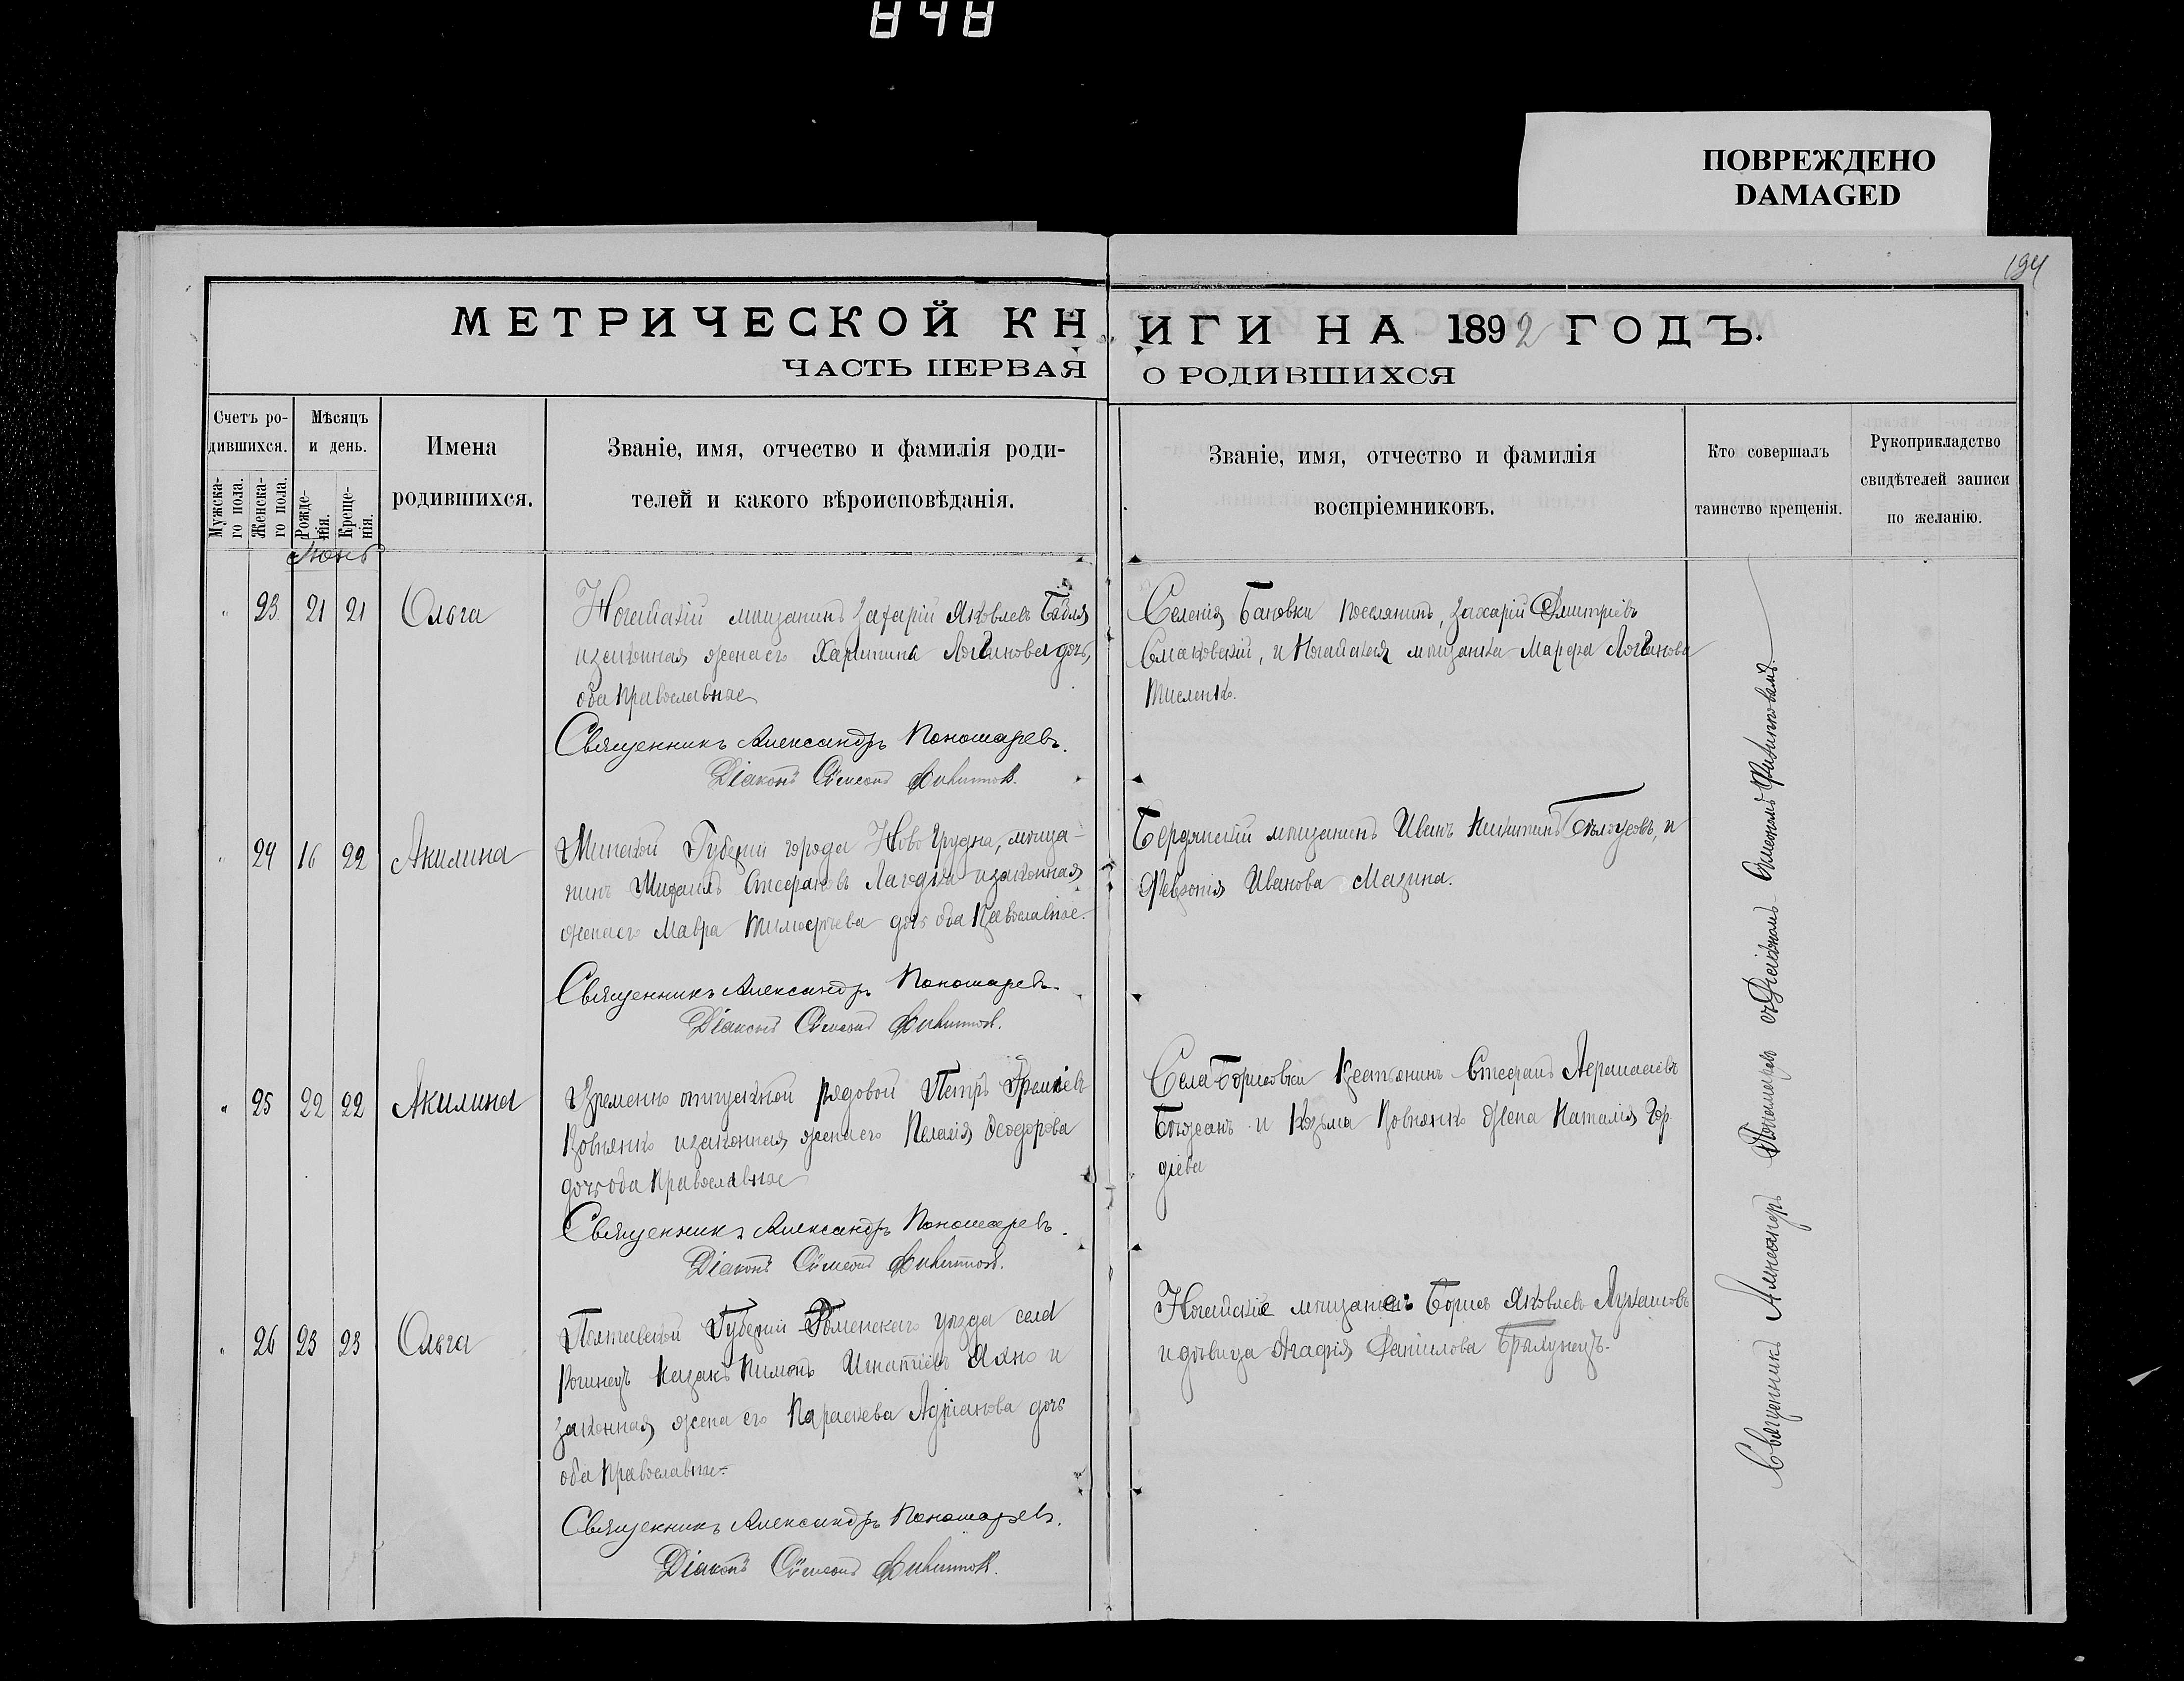 848
ПОВРЕЖДЕНО
DAMAGED
194
МЕТРИЧЕСКОЙ КН ИГИ НА 1892 ГОДЪ.
ЧАСТЬ ПЕРВАЯ О РОДИВШИХСЯ
Счетъ ро-
дившихся.
Мужска-
го пола.
Женска-
го пола.
Мѣсяцъ
и день.
Рожде-
нія.
Креще-
нія.
Имена
родившихся.
Званіе, имя, отчество и фамилія роди-
телей и какого вѣроисповѣданія.
Званіе, имя, отчество и фамилія
воспріемниковъ.
Кто совершалъ
таинство крещенія.
Рукоприкладство
свидѣтелей записи
по желанію.
Іюнь
" 23 21 21 Ольга
Ногайскій мѣщанинъ Захарій Яковлевъ
изаконная жена его Харитина Логвинова дочь,
оба православные
Священникъ Александръ Пономаревъ.
Діаконъ Сѵмеонъ
Селенія Бановки поселянинъ, Захарій Дмитріевъ
Смаковскій, и Ногайская мѣщанка Марфа Логвинова
Тисленко.
" 24 16 22 Акилина
Минской Губерніи города Ново Грудка, мѣща-
нинъ Михаилъ Стефановъ изаконная
жена его Мавра Тимофѣева дочь оба Православные.
Священникъ Александръ Пономаревъ.
Діаконъ Сѵмеонъ
Бердянскій мѣщанинъ Иванъ Никитинъ Бѣлоусовъ, и
Февронія Иванова Мазина.
" 25 22 22 Акилина
Временно отпускной рядовой Петръ
Вовненко изаконная жена его Пелагія Ѳеодорова
дочь оба Православные
Священникъ Александръ Пономаревъ.
Діаконъ Сѵмеонъ
Села Борисовки Крестьянинъ Стефанъ
и Козьма Вовненко жена Наталія Гор
діева
" 26 23 23 Ольга
Полтавской Губерніи Роменскаго уѣзда села
Рогинецъ Казакъ Пименъ Игнатіевъ Яхно и
законная жена его Параскева Адріанова дочь
оба Православные.
Священникъ Александръ Пономаревъ.
Діаконъ Сѵмеонъ
Ногайскіе мѣщане: Борисъ Яковлевъ Лукашовъ
и дѣвица Агафія Даніилова
Священникъ Александръ Пономаревъ съ Діакономъ Сѵмеономъ